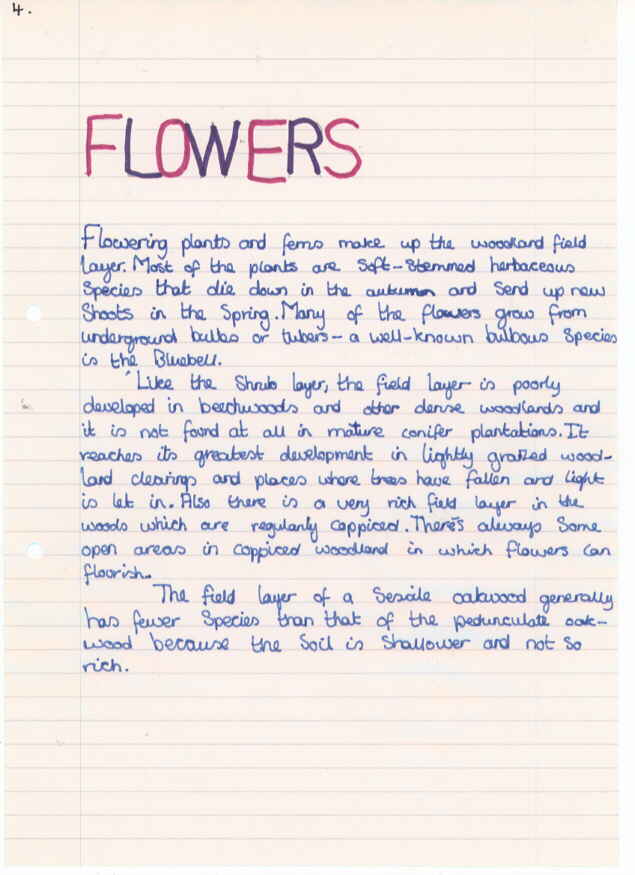 4.
FLOWERS
Flowering plants and ferns make up the woodland field
layer. Most of the plants are Soft-Stemmed herbaceous
Species that die down in the autumn and Send up new
Shoots in the Spring. Many of the flowers grow from
underground bulbs or tubers - a well-known bulbous Species
is the Bluebell.
Like the Shrub layer, the field layer is poorly
developed in beechwoods and other dense woodlands and
it is not found at all in mature conifer plantations. It
reaches its greatest development in lightly grazed wood-
land clearings and places where trees have fallen and light
is let in. Also there is a very rich field layer in the
woods which are regularly coppiced. There's always Some
open areas in coppiced woodland in which flowers can
flourish.
The field layer of a Sessile oakwood generally
has fewer Species than that of the pedunculate oak-
wood because the Soil is Shallower and not So
rich.